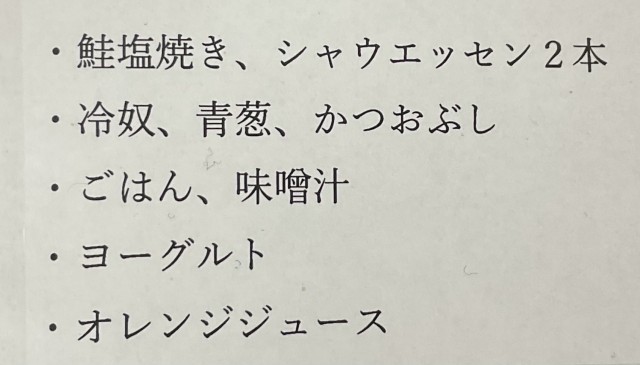 ・鮭塩焼き、シャウエッセン２本
・冷奴、青葱、かつおぶし
・ごはん、味噌汁
・ヨーグルト
・オレンジジュース